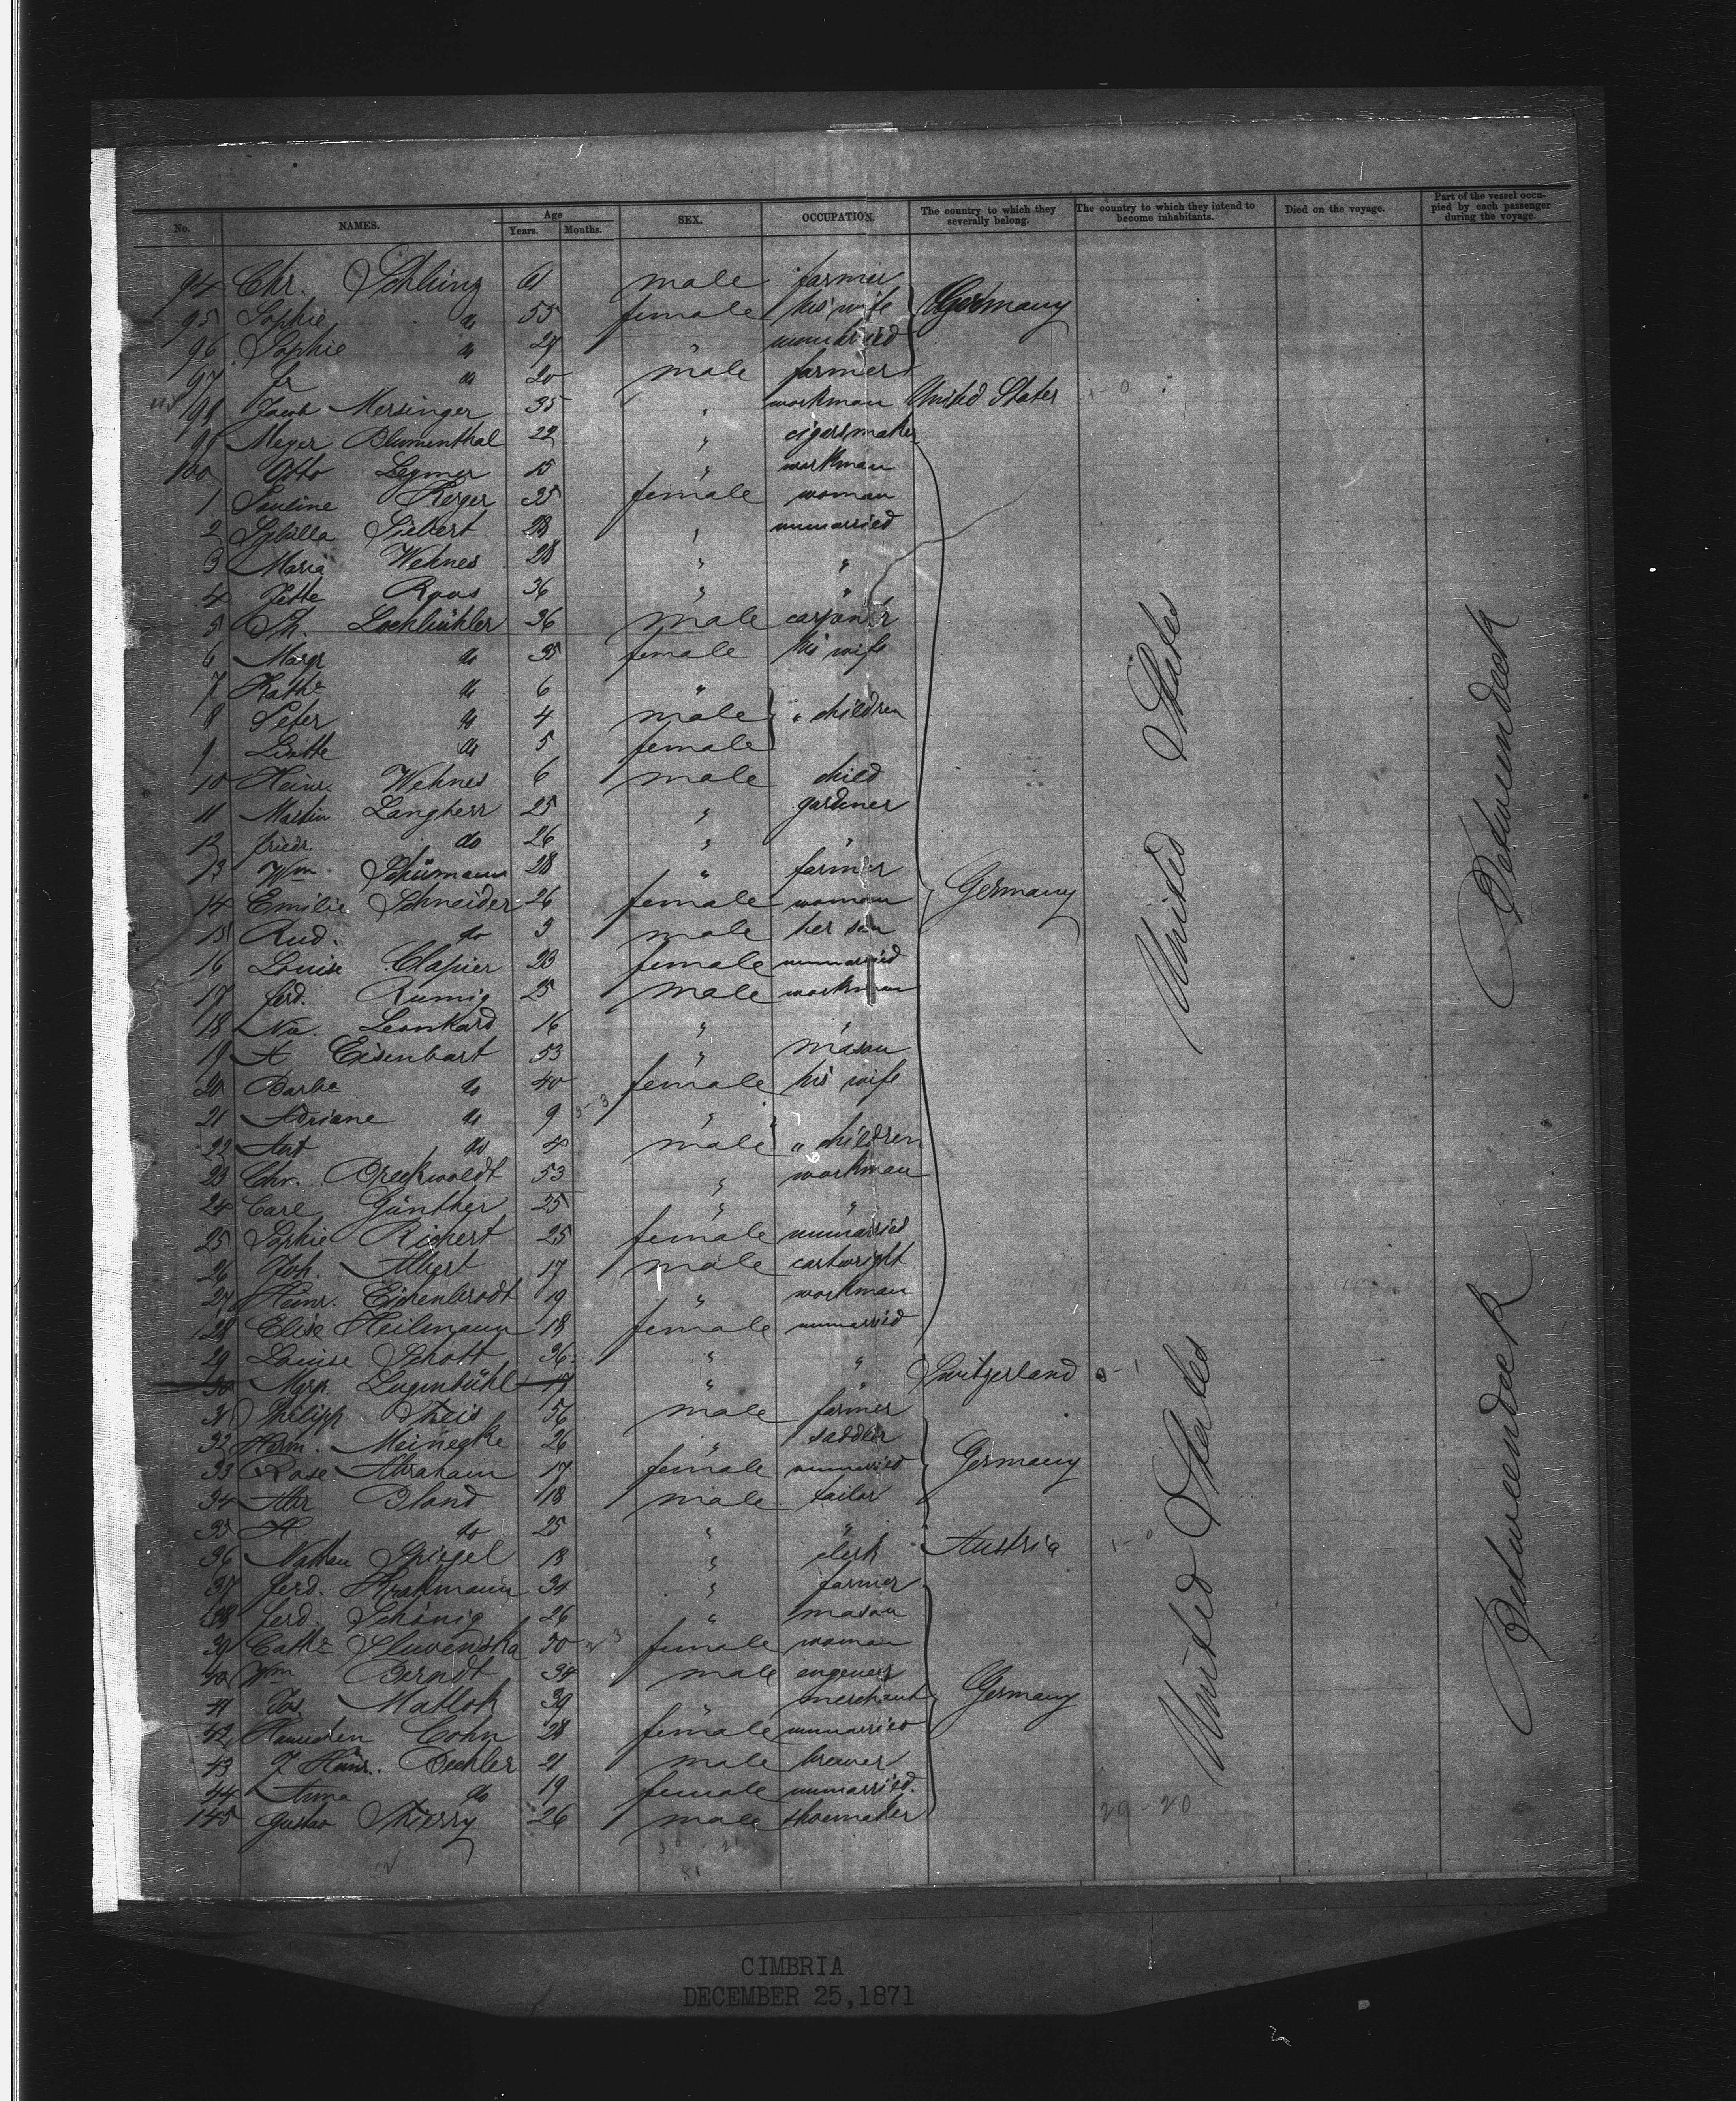 No. NAMES. Age Years. Months. SEX. OCCUPATION. The country to which they severally belong. The country to which they intend to become inhabitants. Died on the voyage. Part of the vessel occupied by each passenger during the voyage.
94 Chr. Schling 61 male farmer
95 Sophie do 55 female his wife Germany
96 Sophie do 27 " unmarried
97 Fr do 20 male farmer
98 Jacob Mersinger 35 " workman United States 1-0
99 Meyer Blumenthal 22 " cigarsmaker
100 Otto Legmer 15 " workman
1 Pauline Berger 35 female woman
2 Sybilla Siebert 23 " unmarried
3 Maria Wehnes 28 " "
4 Jette Roos 36 " "
5 Ph. Lochbühler 36 male carpent'r
6 Margr do 35 female his wife
7 Kathe do 6 "
8 Peter do 4 male " children
9 Lisette do 5 female
10 Heinr. Wehnes 6 male child
11 Martin Langherr 25 " gardener
12 Friedr. do 26 " "
13 Wm. Schümann 28 " farmer
14 Emilie Schneider 26 female woman Germany United States Betweendeck
15 Rud. do 3 male her son
16 Louise Clapier 23 female unmarried
17 Ferd. Rumig 25 male workman
18 Nic. Leonhard 16 " "
19 A Eisenbart 53 " mason
20 Barba do 40 female his wife
21 Adriane do 9 3-3 "
22 Ant do 4 male " children
23 Chr. Breekwoldt 53 " workman
24 Carl Günther 25 " "
25 Sophie Richert 25 female unmarried
26 Joh. Albert 17 male cartwright
27 Heinr. Eichenbrodt 19 " workman
128 Elise Heilmann 18 female unmarried
29 Louise Schott 36 " "
30 Mgr. Lugenbühl 17 " " Switzerland 0-1
31 Philipp Theis 56 male farmer
32 Herm. Meinegke 26 " saddler
33 Rose Abraham 17 female unmarried Germany
34 Abr Bland 18 male tailor
35 H do 25 " "
36 Nathan Spiegel 18 " clerk Austria 1-0
37 Ferd. Brakmann 34 " farmer
138 Ferd. Schönig 26 " mason
39 Cathe Sluvenska 50 female woman
40 Wm Berndt 34 male engeneer
41 Jos. Matlok 39 " merchant Germany United States Betweendeck
42 Cohn 28 female unmarried
43 J. Heinr. Bechler 21 male brewer
44 Anna do 19 female unmarried.
145 Gustav Thierry 26 male shoemaker
29-20
CIMBRIA
DECEMBER 25,1871